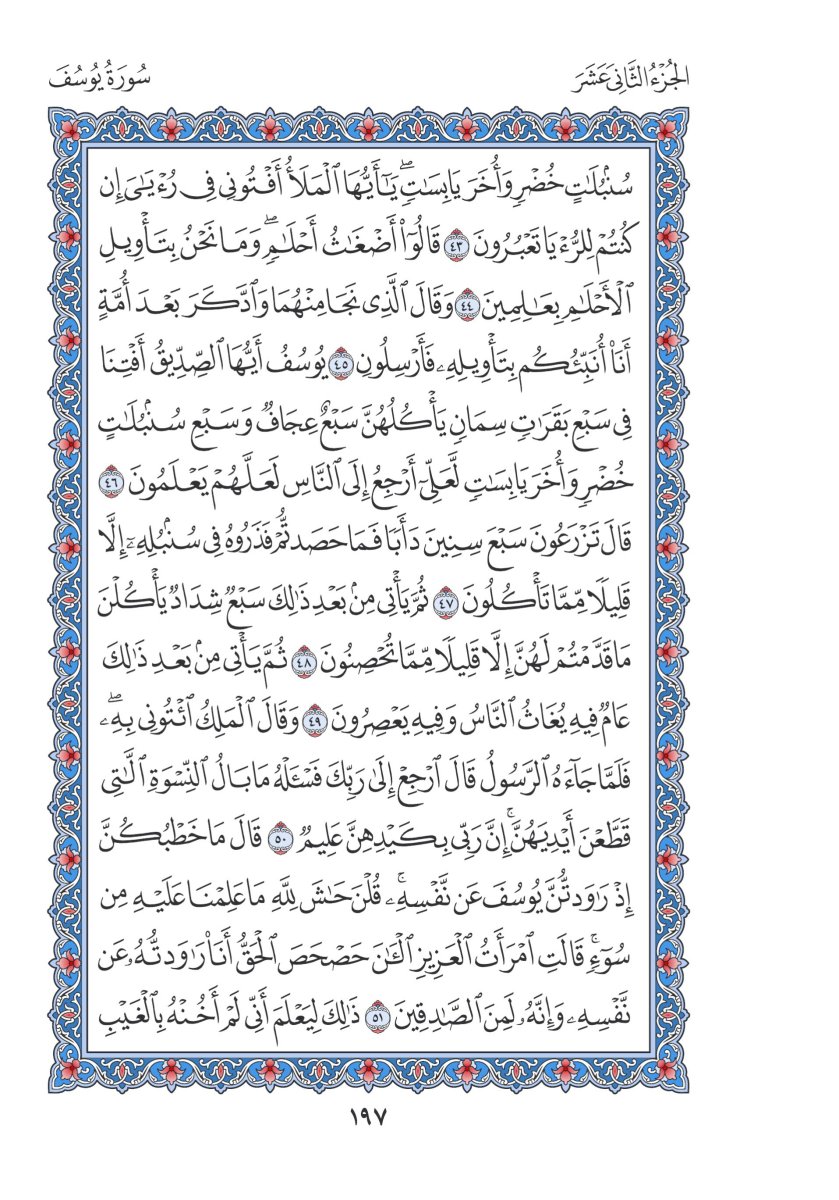 الجُزْءُ الثَّانِيَ عَشَرَ
سُورَةُ يُوسُفَ
سُنۢبُلَٰتٍ خُضْرٍ وَأُخَرَ يَابِسَٰتٖۖ يَٰٓأَيُّهَا ٱلْمَلَأُ أَفْتُونِي فِي رُءْيَٰيَ إِن
كُنتُمْ لِلرُّءْيَا تَعْبُرُونَ ٤٣ قَالُوٓاْ أَضْغَٰثُ أَحْلَٰمٖۖ وَمَا نَحْنُ بِتَأْوِيلِ
ٱلْأَحْلَٰمِ بِعَٰلِمِينَ ٤٤ وَقَالَ ٱلَّذِي نَجَا مِنْهُمَا وَٱدَّكَرَ بَعْدَ أُمَّةٍ
أَنَا۠ أُنَبِّئُكُم بِتَأْوِيلِهِۦ فَأَرْسِلُونِ ٤٥ يُوسُفُ أَيُّهَا ٱلصِّدِّيقُ أَفْتِنَا
فِي سَبْعِ بَقَرَٰتٖ سِمَانٖ يَأْكُلُهُنَّ سَبْعٌ عِجَافٞ وَسَبْعِ سُنۢبُلَٰتٍ
خُضْرٖ وَأُخَرَ يَابِسَٰتٖ لَّعَلِّيٓ أَرْجِعُ إِلَى ٱلنَّاسِ لَعَلَّهُمْ يَعْلَمُونَ ٤٦
قَالَ تَزْرَعُونَ سَبْعَ سِنِينَ دَأَبٗا فَمَا حَصَدتُّمْ فَذَرُوهُ فِي سُنۢبُلِهِۦٓ إِلَّا
قَلِيلٗا مِّمَّا تَأْكُلُونَ ٤٧ ثُمَّ يَأْتِي مِنۢ بَعْدِ ذَٰلِكَ سَبْعٞ شِدَادٞ يَأْكُلْنَ
مَا قَدَّمْتُمْ لَهُنَّ إِلَّا قَلِيلٗا مِّمَّا تُحْصِنُونَ ٤٨ ثُمَّ يَأْتِي مِنۢ بَعْدِ ذَٰلِكَ
عَامٞ فِيهِ يُغَاثُ ٱلنَّاسُ وَفِيهِ يَعْصِرُونَ ٤٩ وَقَالَ ٱلْمَلِكُ ٱئْتُونِي بِهِۦۖ
فَلَمَّا جَآءَهُ ٱلرَّسُولُ قَالَ ٱرْجِعْ إِلَىٰ رَبِّكَ فَسْـَٔلْهُ مَا بَالُ ٱلنِّسْوَةِ ٱلَّٰتِي
قَطَّعْنَ أَيْدِيَهُنَّۚ إِنَّ رَبِّي بِكَيْدِهِنَّ عَلِيمٞ ٥٠ قَالَ مَا خَطْبُكُنَّ
إِذْ رَٰوَدتُّنَّ يُوسُفَ عَن نَّفْسِهِۦۚ قُلْنَ حَٰشَ لِلَّهِ مَا عَلِمْنَا عَلَيْهِ مِن
سُوٓءٖۚ قَالَتِ ٱمْرَأَتُ ٱلْعَزِيزِ ٱلْـَٰٔنَ حَصْحَصَ ٱلْحَقُّ أَنَا۠ رَٰوَدتُّهُۥ عَن
نَّفْسِهِۦ وَإِنَّهُۥ لَمِنَ ٱلصَّٰدِقِينَ ٥١ ذَٰلِكَ لِيَعْلَمَ أَنِّي لَمْ أَخُنْهُ بِٱلْغَيْبِ
١٩٧